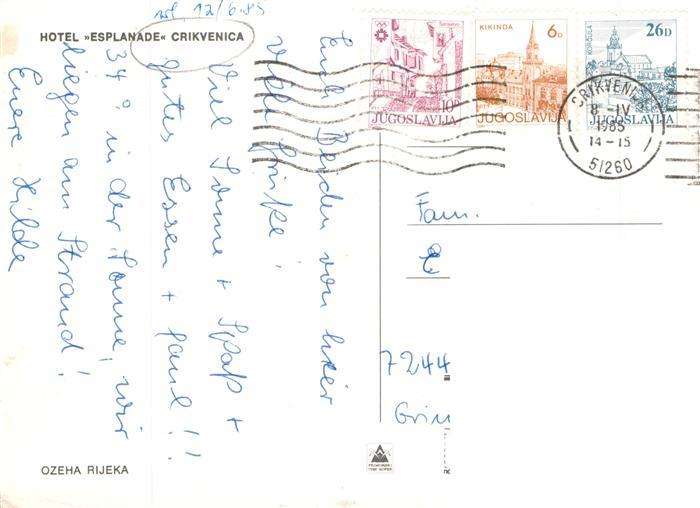 erl. 12/6.85
HOTEL »ESPLANADE« CRIKVENICA
Euch Beiden von hier
viele Grüße!
Viel Sonne + Spaß +
gutes Essen + faul!!
34° in der Sonne, wir
liegen am Strand!
Euere Hilde
OZEHA RIJEKA
10
JUGOSLAVIJA
KIKINDA
6D
JUGOSLAVIJA
KORČULA
26D
JUGOSLAVIJA
CRIKVENICA
8-IV
1985
14-15
51260
Fam.
7244